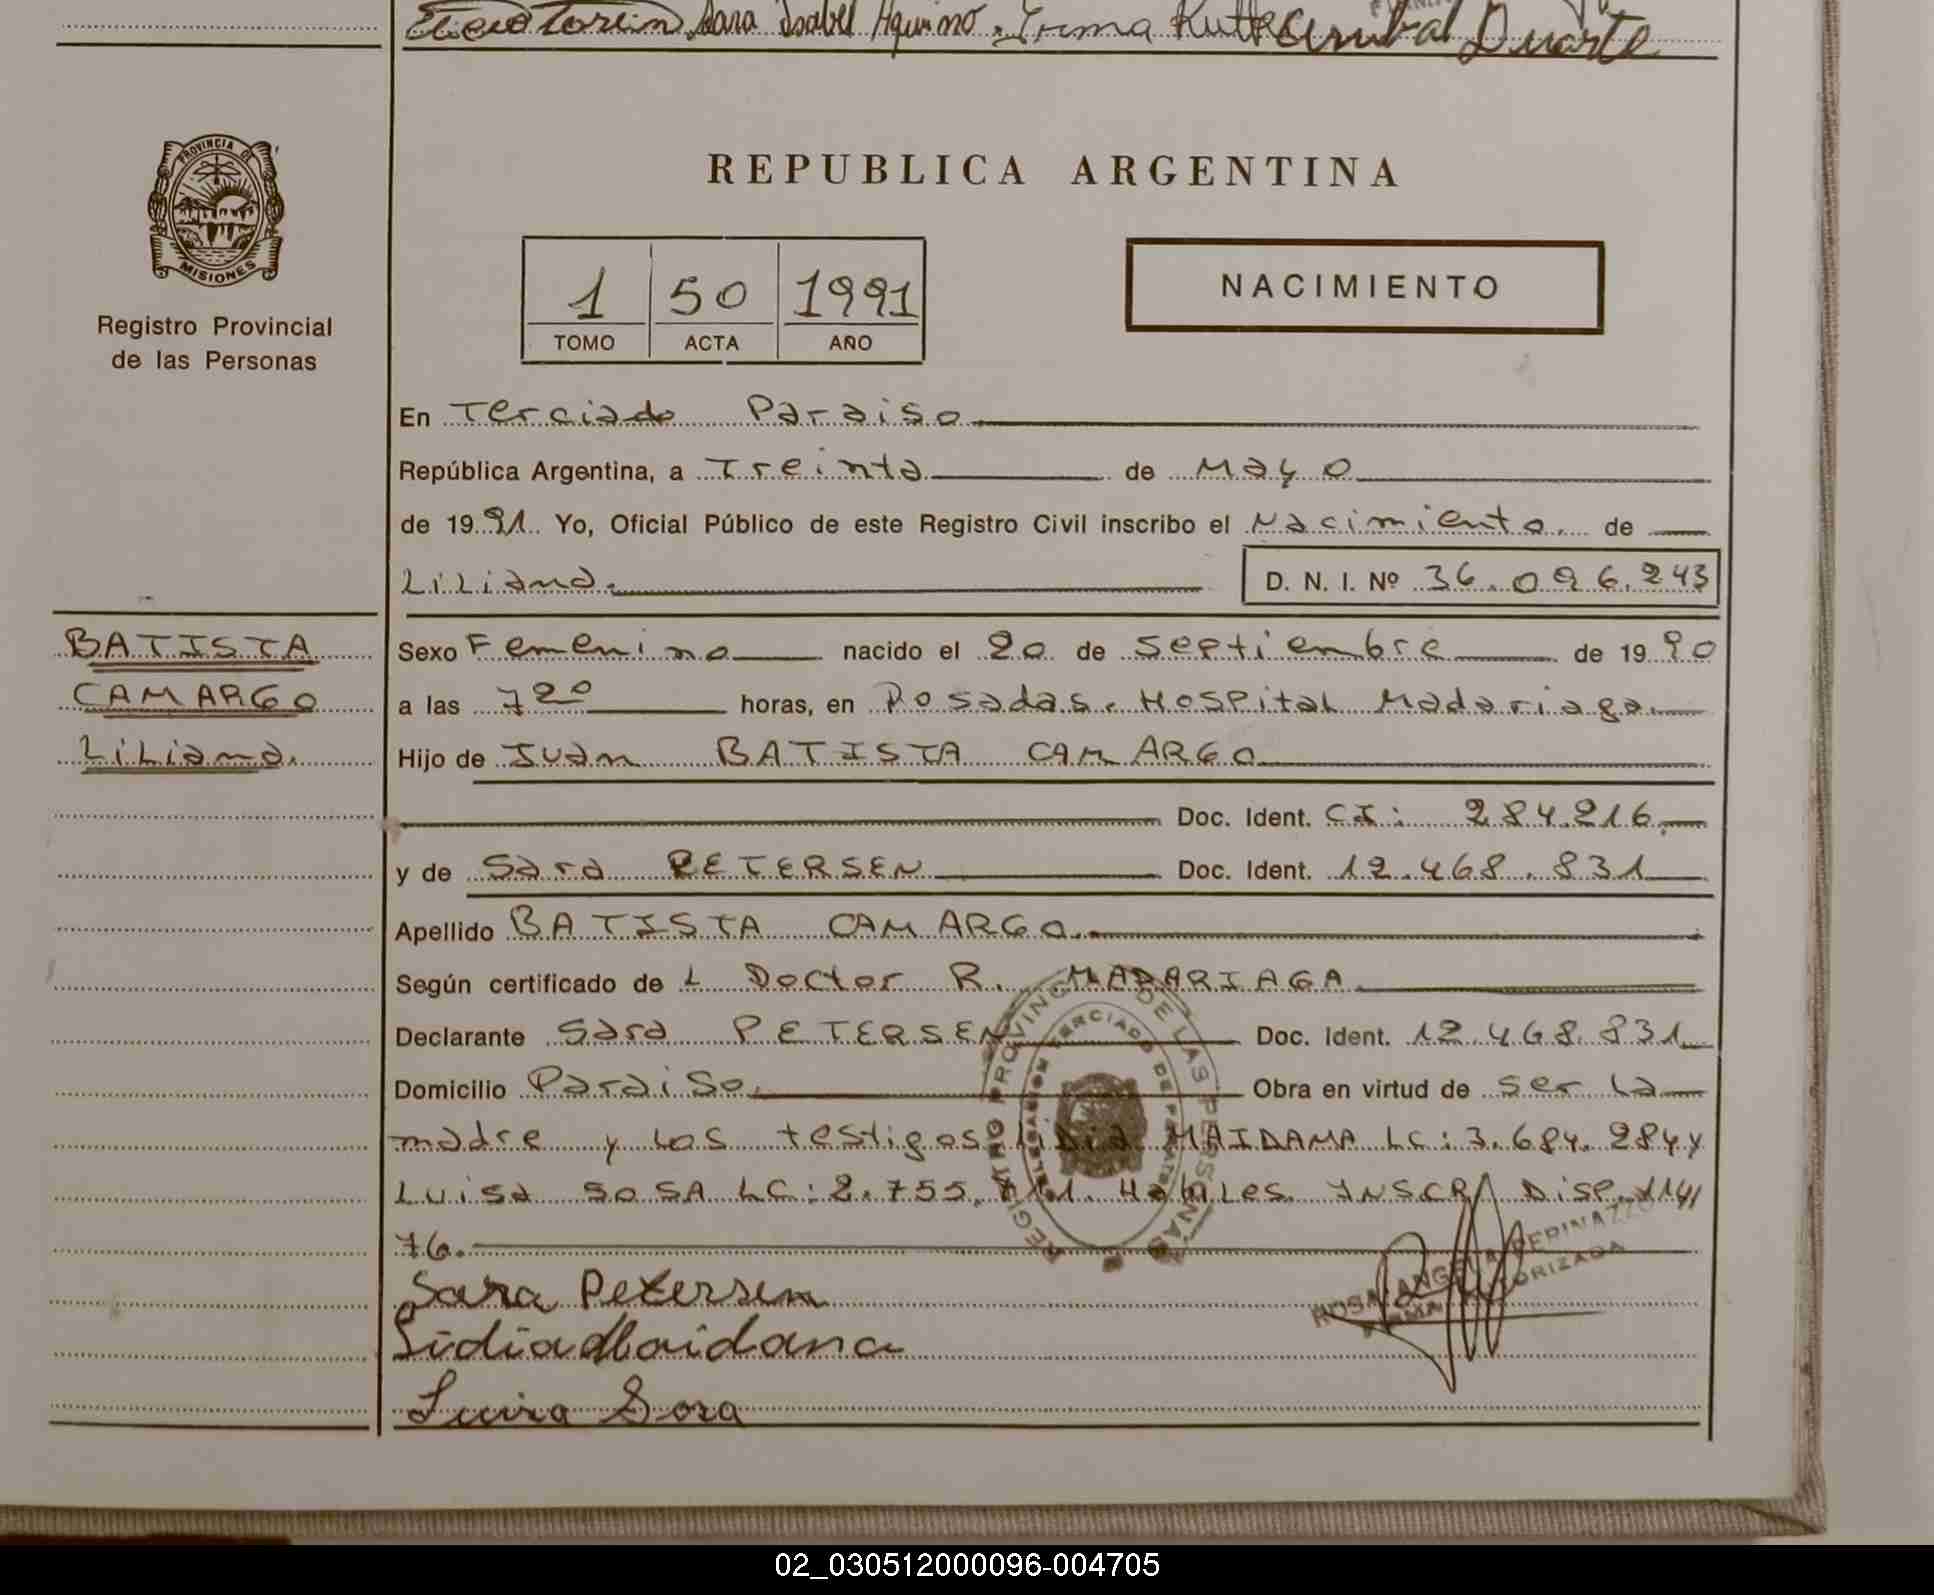 Sara Isabel Aquino. Irma Rutt Anibal Duarte
PROVINCIA DE
MISIONES
Registro Provincial
de las Personas
REPUBLICA ARGENTINA
1 50 1991
TOMO ACTA AÑO
NACIMIENTO
En Terciado Paraiso
República Argentina, a Treinta de Mayo
de 1991 Yo, Oficial Público de este Registro Civil inscribo el Nacimiento de
Liliana. D. N. I. Nº 36.096.243
BATISTA
CAMARGO
Liliana.
Sexo Femenino nacido el 20 de Septiembre de 1990
a las 7 20 horas, en Posadas. Hospital Madariaga.
Hijo de Juan BATISTA CAMARGO
Doc. Ident. CI: 284.216.
y de Sara PETERSEN Doc. Ident. 12.468.831
Apellido BATISTA CAMARGO.
Según certificado de L Doctor R. MADARIAGA
Declarante Sara PETERSEN Doc. Ident. 12.468.831
Domicilio Paraiso. Obra en virtud de ser la
madre y los testigos Lidia MAIDAMA LC: 3.684.284 y
Luisa SOSA LC: 2.755. Habiles. INSCR. Disp. 114/
76.
REGISTRO PROVINCIAL DE LAS PERSONAS
DELEGACION TERCIADO
ROSA ANGELA PERINAZZO
FIRMA AUTORIZADA
Sara Petersen
Lidia Maidana
Luisa Sosa
02_030512000096-004705